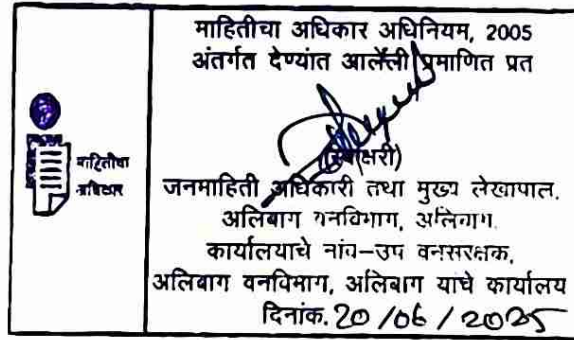 माहितीचा अधिकार अधिनियम, 2005
अंतर्गत देण्यांत आलेली प्रमाणित प्रत
माहितीचा
अधिकार
(स्वाक्षरी)
जनमाहिती अधिकारी तथा मुख्य लेखापाल,
अलिबाग वनविभाग, अलिबाग.
कार्यालयाचे नांव-उप वनसरक्षक,
अलिबाग वनविभाग, अलिबाग यांचे कार्यालय
दिनांक. 20/06/2025